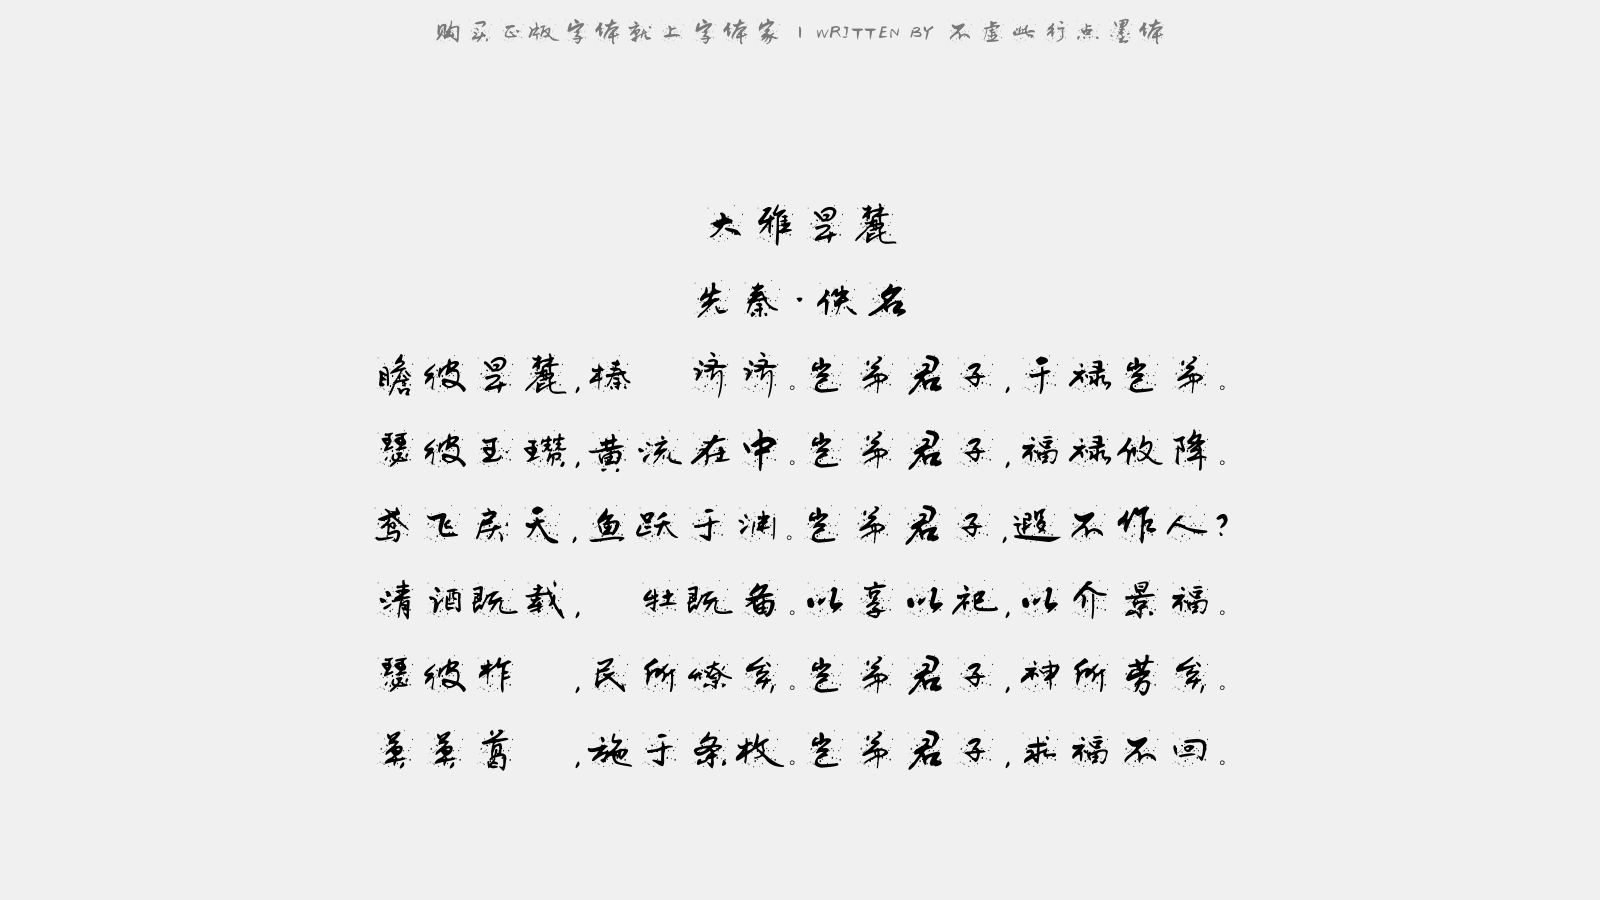 购买正版字体就上字体家 | WRITTEN BY 不虚此行点墨体
大雅旱麓
先秦·佚名
瞻彼旱麓,榛 济济。岂弟君子,干禄岂弟。
瑟彼玉瓒,黄流在中。岂弟君子,福禄攸降。
鸢飞戾天,鱼跃于渊。岂弟君子,遐不作人?
清酒既载, 牡既备。以享以祀,以介景福。
瑟彼柞 ,民所燎矣。岂弟君子,神所劳矣。
莫莫葛 ,施于条枚。岂弟君子,求福不回。